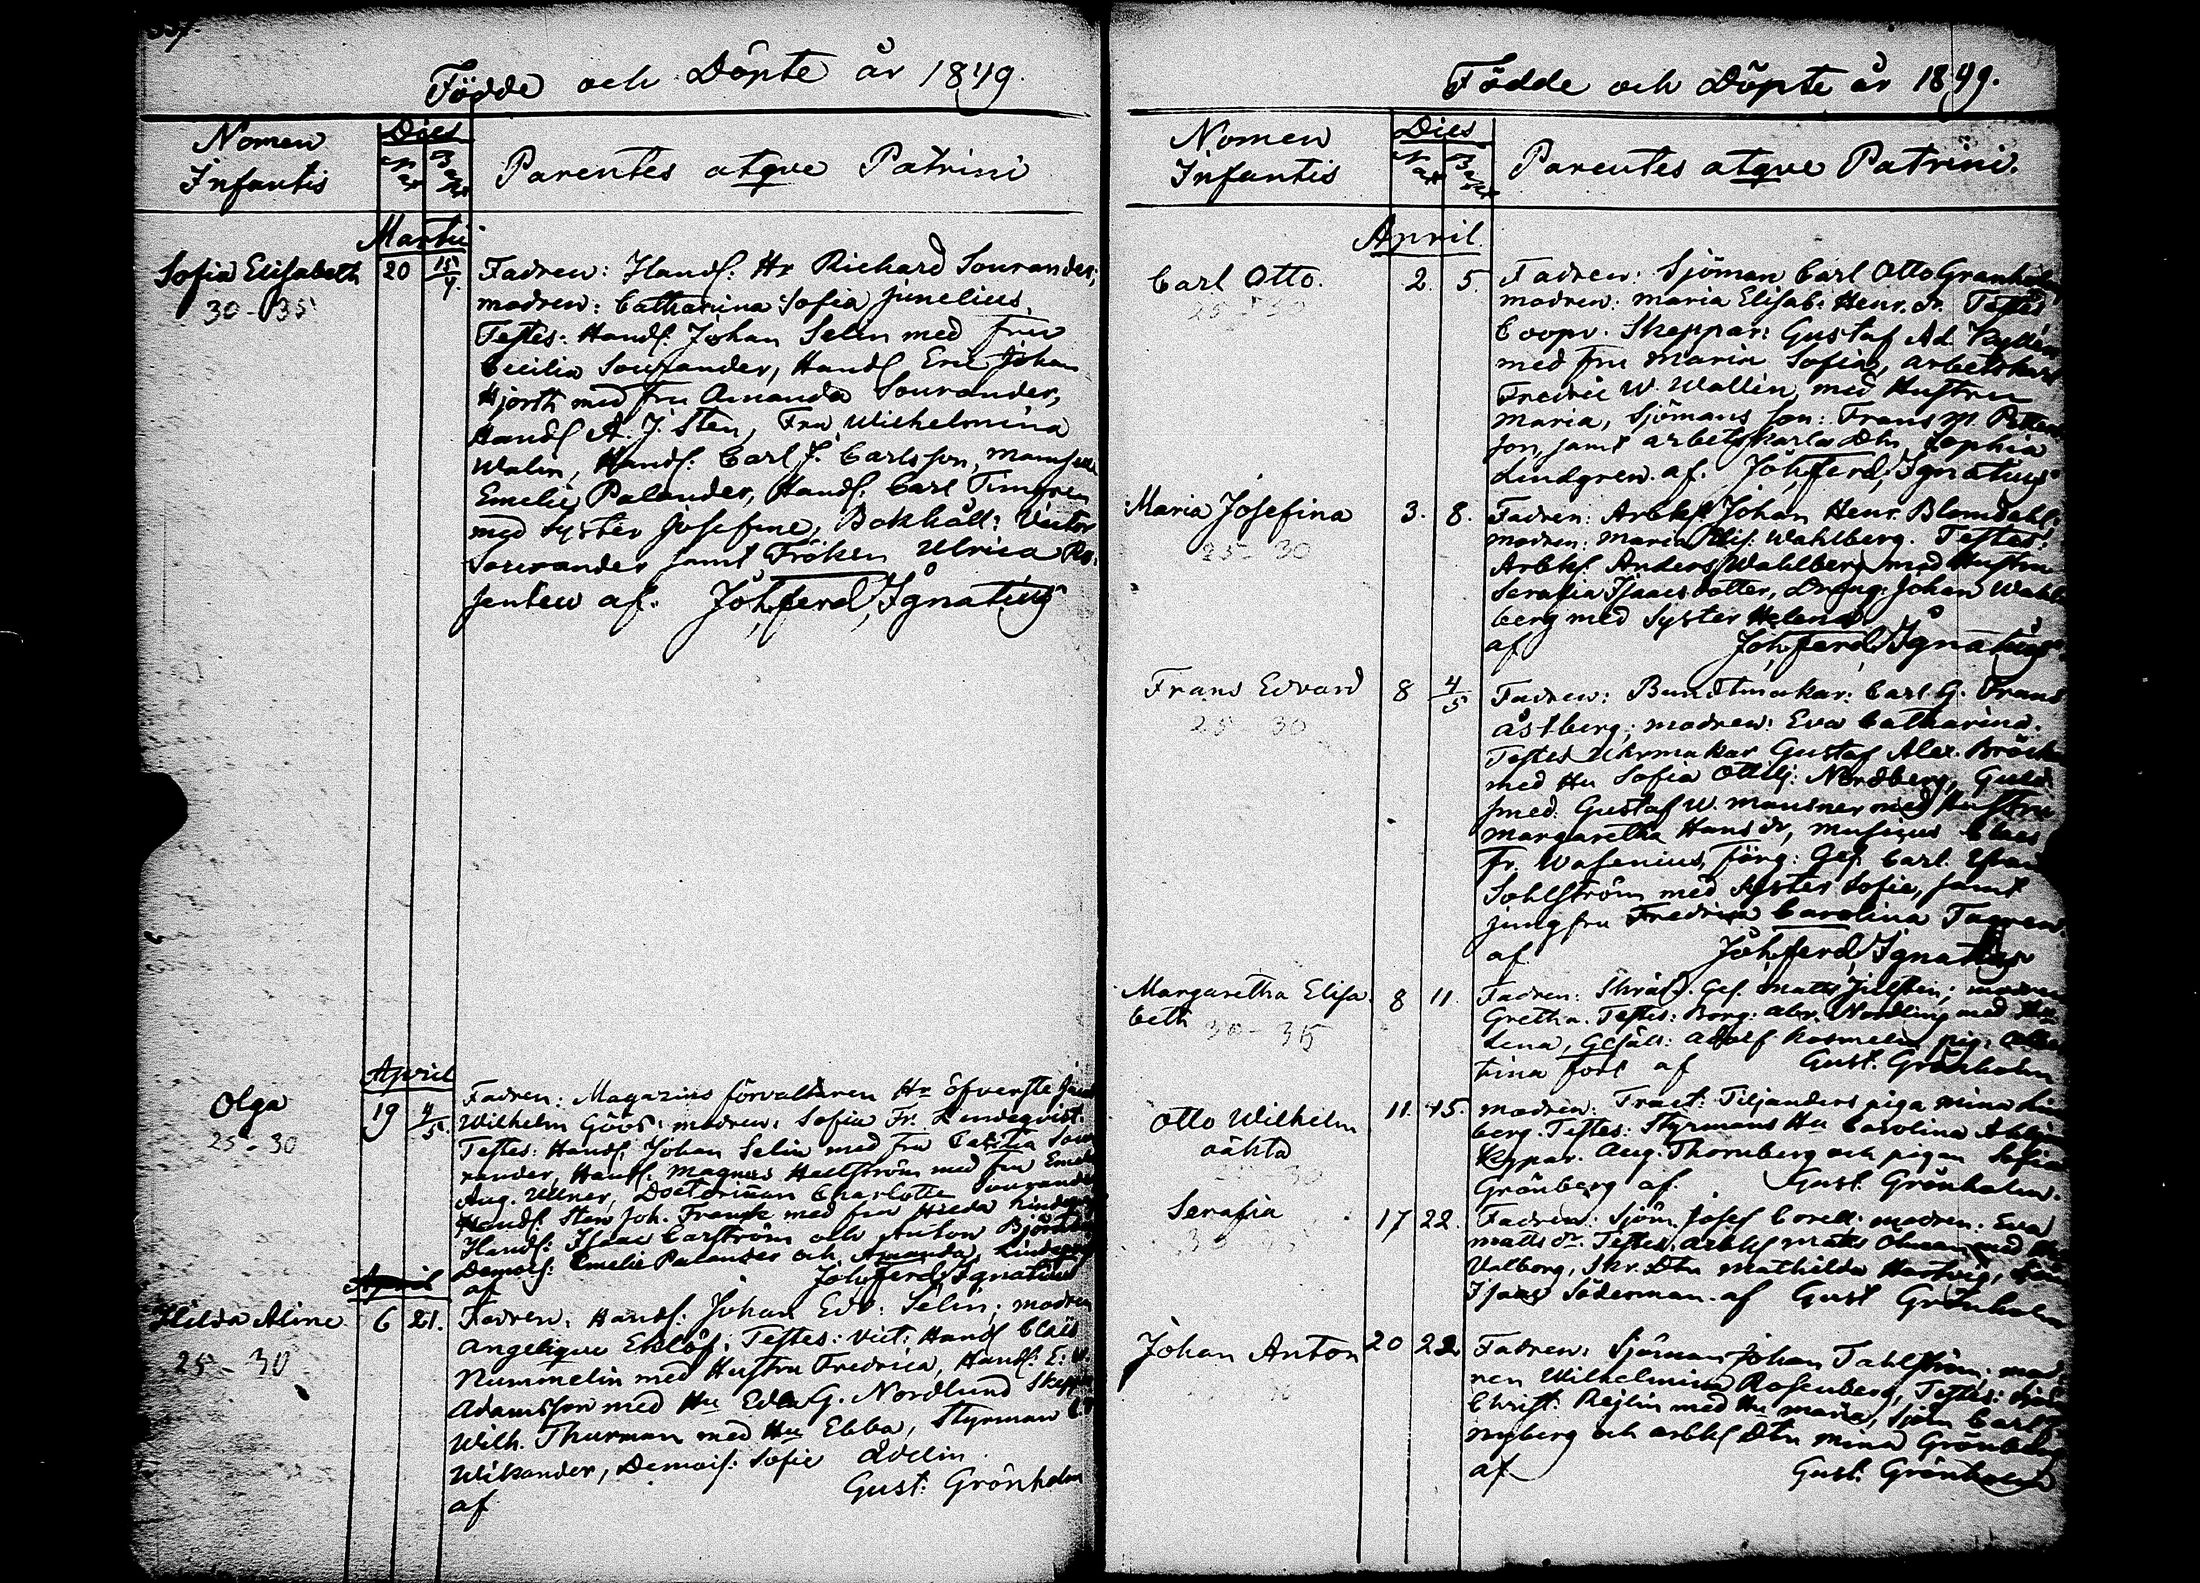 Födde och Döpte år 1849.
Nomen Infantis
Dies
Nat Bapt
Parentes atqve Patrini
Martii
Sofia Elisabeth 20 15/4
30-35
Fadren: Handl: Hr Richard Sourander;
modren: Catharina Sofia Junelius.
Testes: Handl: Johan Selin med fru
Cecilia Sourander, Handl Eric Johan
Hjorth med fru Amanda Sourander,
Handl A. J. Sten, Fru Wilhelmina
Walin, Handl: Carl J. Carlsson, mamsell
Emelie Palander, Handl: Carl Timgren
med syster Josefine, Bokhåll: Victor
Sourander samt Fröken Ulrica Ro-
senlew af. Joh. ferd. Ignatius
April
Olga 19 4/5
25-30
Fadren: Magazins förvaltaren Hr Öfverste
Wilhelm Göös; modren: Sofia Fr. Lindeqvist.
Testes: Handl: Johan Selin med fru Cecilia Sou-
rander, Handl: Magnus Hellström med fru
Aug. Ullner, Doctorinnan Charlotte Sourander
Handl: Sten Joh. Franck med fru Hilda
Handl: Isaac Carström och Anton
Demois: Emelie Palander och Amanda
af Joh. ferd. Ignatius
April
Hilda Aline 6 21.
25-30
Fadren: Handl: Johan Edv: Selin; modren
Angelique Eklöf; Testes: Vict: Handl Claes
Nummelin med Hustru Fredrica, Handl: E: W.
Adamsson med Hu Edla G. Nordlund Skeppar
Wilh. Thurman med Hu Ebba, Styrman
Wikander, Demois: Sofie
af Gust: Grönholm
Födde och Döpte år 1849.
Nomen Infantis
Dies
Nat Bapt
Parentes atqve Patrini.
April
Carl Otto. 2. 5.
25-30
Fadren: Sjöman Carl Otto Granholm
modren: Maria Elisab: Henr. dr. Testes
Coopv. Skeppar: Gustaf Ad. Kyllén
med fru Maria Sofia, arbetskarl
Fredric W. Wallin med Hustru
Maria, Sjömans son: Frans M. Petters
son, samt arbetskarls dtn Sophia
Lindgren. af. Joh. ferd. Ignatius
Maria Josefina 3. 8.
25-30
Fadren: Arbkl Johan Henr. Blomdahl;
modren: Maria Elis: Wahlberg. Testes:
Arbkl. Anders Wahlberg med Hustru
Serafia Isaacsdotter, Dräng: Johan Wahl-
berg med syster Helena
af Joh. ferd. Ignatius
Frans Edvard 8 4/5
25 30
Fadren: Bundtmakar: Carl G. Frans
Åstberg; modren: Eva Catharina.
Testes Uhrmakar Gustaf Alex.
med Hu Sofia Ottilj: Nordberg, Guld-
smed. Gustaf W. Mansner med Hustru
Margaretha Hans dr, musicus Claes
Fr. Wasenius, Färg: Ges. Carl
Sohlström med syster Sofie, samt
jungfru Fredrica Carolina Tagren
af Joh. ferd. Ignatius
Margaretha Elisa-
beth 8 11.
30-35
Fadren: Skrädd. Ges. Matts; modren
Gretha. Testes: Borg: Abr. Nordling med Hu
Lena, Gesäll: Adolf Rosmelin pig:
tina fors af Gust. Grönholm
Otto Wilhelm 11. 15.
oäkta
25 30
modren: Tract: Tiljanders piga Mina
berg. Testes: Styrmans Hu Carolina
Kypar. Aug. Thornberg och pigan Sofia
Grönberg af. Gust. Grönholm.
Serafia 17 22.
Fadren: Sjöm. Josef Corell. modren. Eva
Matts dr. Testes: arbkl Matts Ohman med
Valborg, Skr. Dtn Mathilda Hartvig,
Isaac Söderman. af Gust Grönholm
Johan Anton 20 22.
Fadren: Sjöman Johan Tahlström; mod-
ren Wilhelmina Rosenberg, Testes:
Christ: Rejlin med Hu Maria, Sjöm Carl
Nyberg och arbkl Dtn Mina Grönberg
af Gust: Grönholm